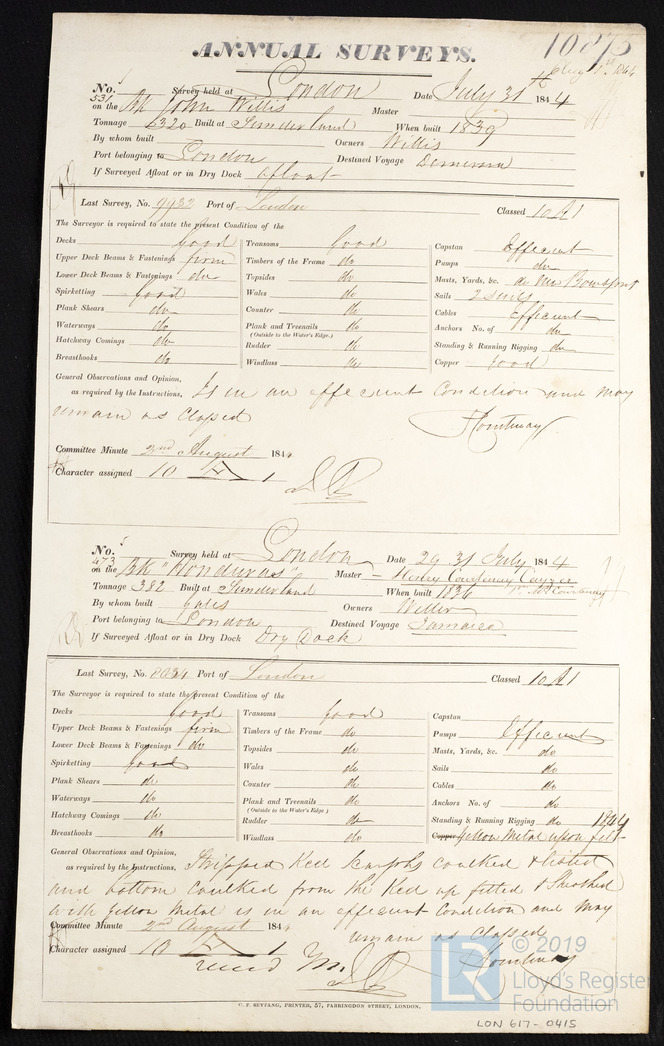 ANNUAL SURVEYS.
10875
No. 531 Survey held at London Date July 31 1844
on the Bk John Willis Master
Tonnage 320 Built at Sunderland When built 1839
By whom built Owners Willis
Port belonging to London Destined Voyage Demerara
If Surveyed Afloat or in Dry Dock afloat
Last Survey, No. 9932 Port of London Classed 10 A1
The Surveyor is required to state the present Condition of the
Decks good Transoms good Capstan Efficient
Upper Deck Beams & Fastenings firm Timbers of the Frame do Pumps do
Lower Deck Beams & Fastenings do Topsides do Masts, Yards, &c. do New Bowsprit
Spirketting good Wales do Sails 2 Suits
Plank Shears do Counter do Cables Efficient
Waterways do Plank and Treenails do Anchors No. of do
(Outside to the Water's Edge.)
Hatchway Comings do Rudder do Standing & Running Rigging do
Breasthooks do Windlass do Copper good
General Observations and Opinion, as required by the Instructions, Is in an efficient Condition and may
remain as classed
Committee Minute 2nd August 1844
Character assigned 10 A 1
No. 473 Survey held at London Date 29 31 July 1844
on the Bk "Honduras" Master Henry
Tonnage 382 Built at Sunderland When built 1836
By whom built Gales Owners Willis
Port belonging to London Destined Voyage Jamaica
If Surveyed Afloat or in Dry Dock Dry Dock
Last Survey, No. Port of London Classed 10 A1
The Surveyor is required to state the present Condition of the
Decks good Transoms good Capstan
Upper Deck Beams & Fastenings firm Timbers of the Frame do Pumps Efficient
Lower Deck Beams & Fastenings do Topsides do Masts, Yards, &c. do
Spirketting good Wales do Sails do
Plank Shears do Counter do Cables do
Waterways do Plank and Treenails do Anchors No. of do
(Outside to the Water's Edge.)
Hatchway Comings do Rudder do Standing & Running Rigging do 1844
Breasthooks do Windlass do Copper Yellow Metal upon felt
General Observations and Opinion, as required by the Instructions, Stripped Keel Scarphs caulked &
and bottom caulked from the Keel up felted & Sheathed
with Yellow Metal is in an efficient Condition and may
remain as classed
Committee Minute 2nd August 1844
Character assigned 10 A 1
C. F. SEYFANG, PRINTER, 57, FARRINGDON STREET, LONDON.
LR © 2019
Lloyd's Register
Foundation
LON 617-0415